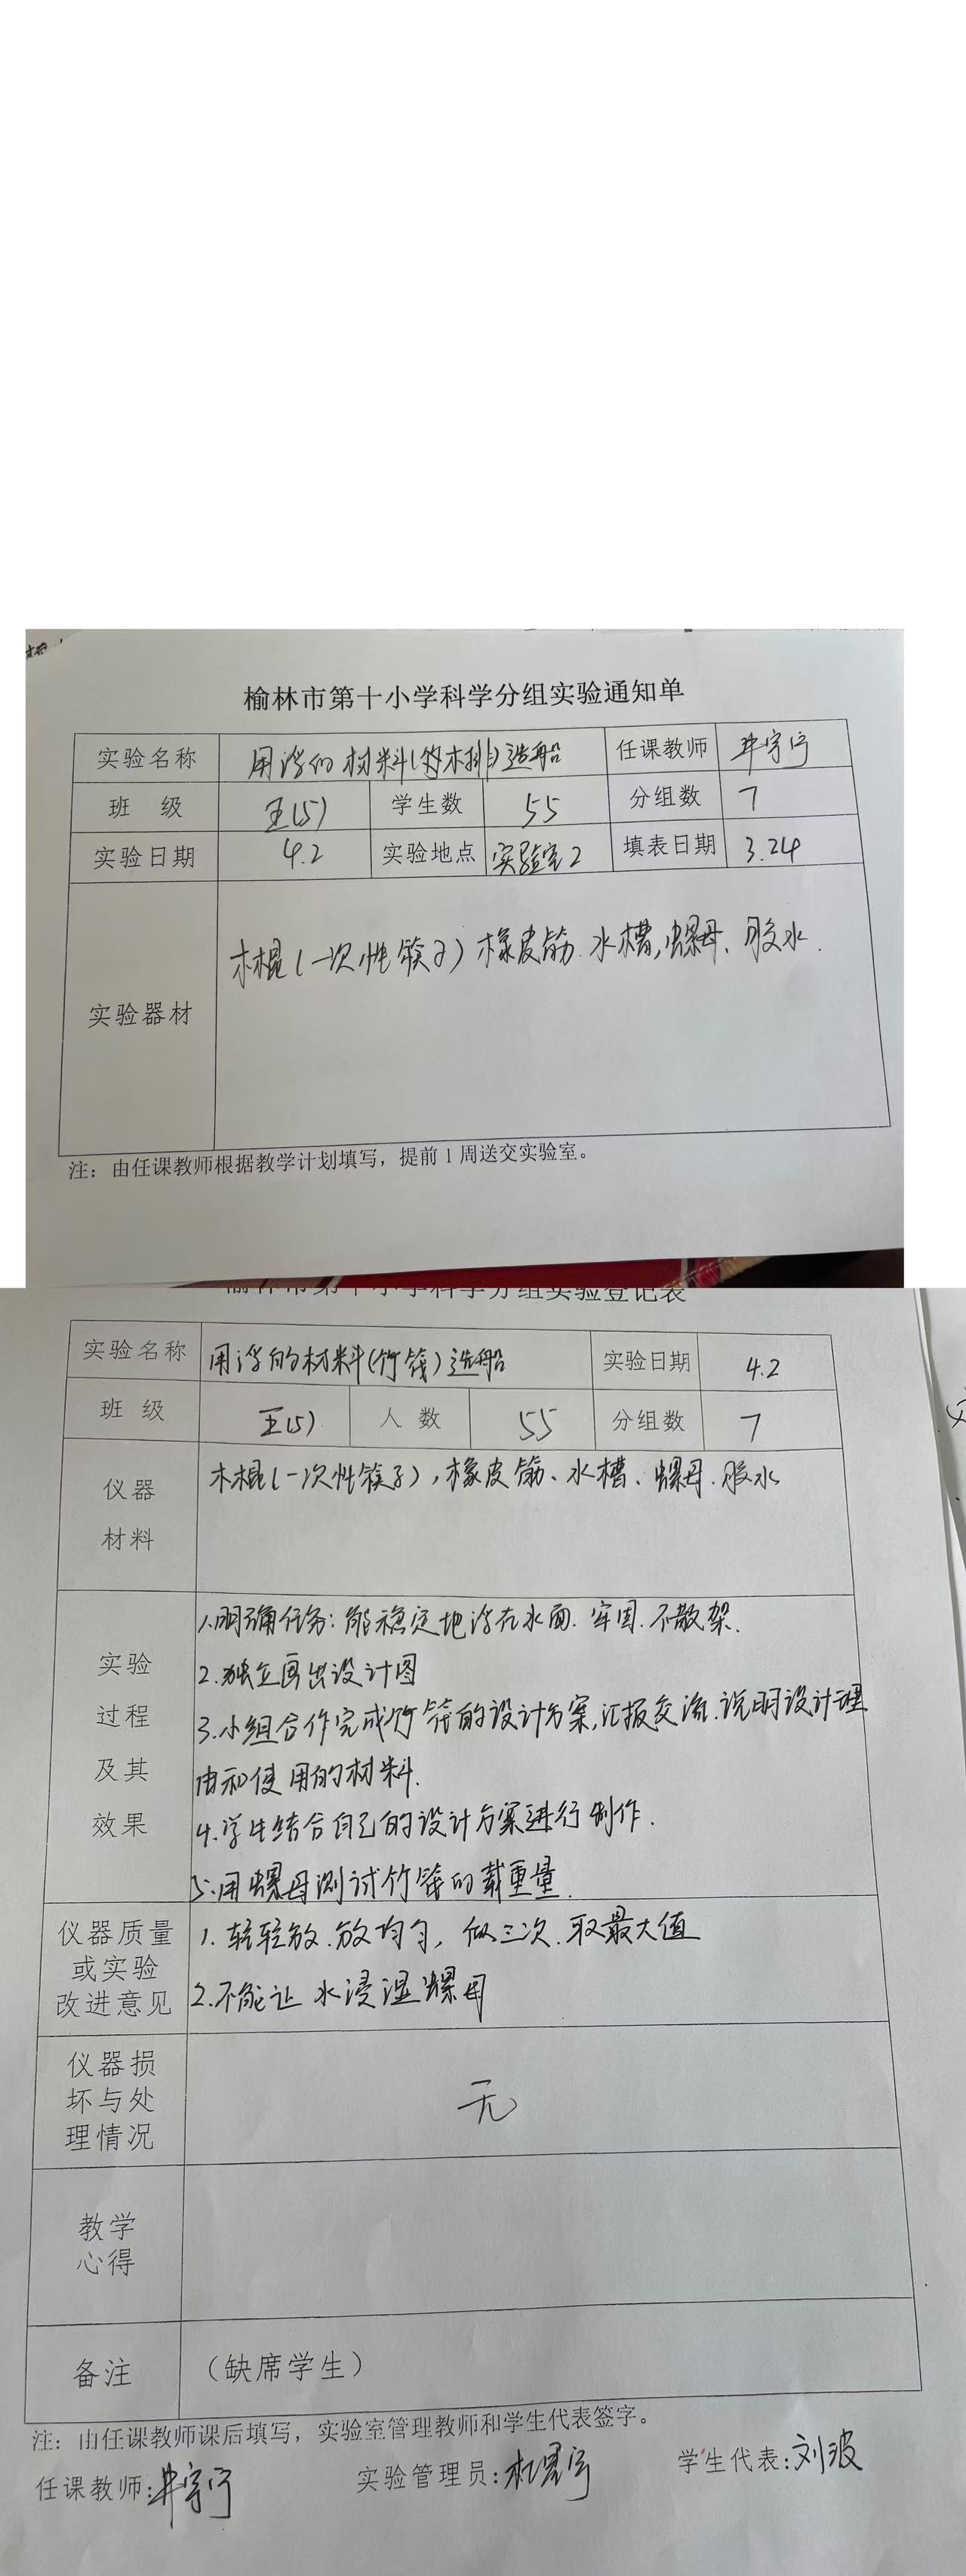 榆林市第十小学科学分组实验通知单
实验名称 用浮的材料(竹木排)造船 任课教师 井宇宁
班 级 五(5) 学生数 55 分组数 7
实验日期 4.2 实验地点 实验室2 填表日期 3.24
实验器材 木棍(一次性筷子)橡皮筋.水槽,螺母、胶水.
注：由任课教师根据教学计划填写，提前1周送交实验室。
榆林市第十小学科学分组实验登记表
实验名称 用浮的材料(竹筏)造船 实验日期 4.2
班 级 五(5) 人 数 55 分组数 7
仪器材料 木棍(一次性筷子),橡皮筋、水槽、螺母.胶水
实验过程及其效果
1.明确任务:能稳定地浮在水面.牢固.不散架.
2.独立画出设计图
3.小组合作完成竹筏的设计方案,汇报交流.说明设计理
由和使用的材料.
4.学生结合自己的设计方案进行制作.
5.用螺母测试竹筏的载重量.
仪器质量或实验改进意见
1.轻轻放.放均匀,做三次.取最大值
2.不能让水浸湿螺母
仪器损坏与处理情况 无
教学心得
备注 （缺席学生）
注：由任课教师课后填写，实验室管理教师和学生代表签字。
任课教师:井宇宁 实验管理员: 学生代表:刘波